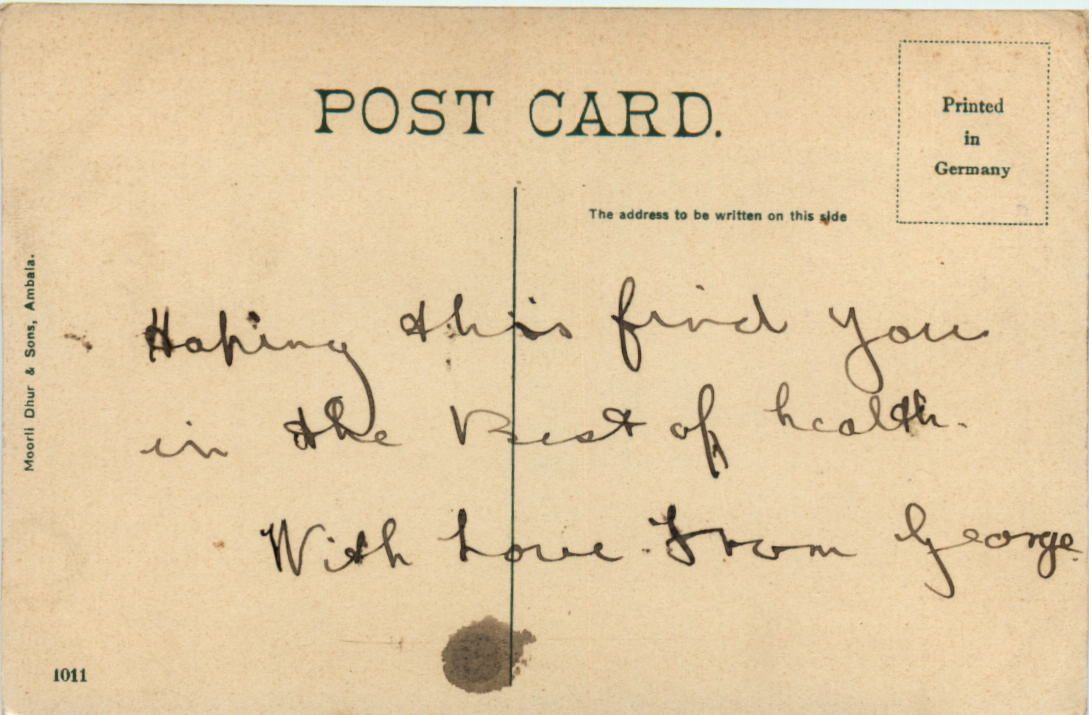 POST CARD.
Printed
in
Germany
The address to be written on this side
Moorli Dhur & Sons, Ambala.
Hoping this find you
in the Best of health.
With Love From George.
1011